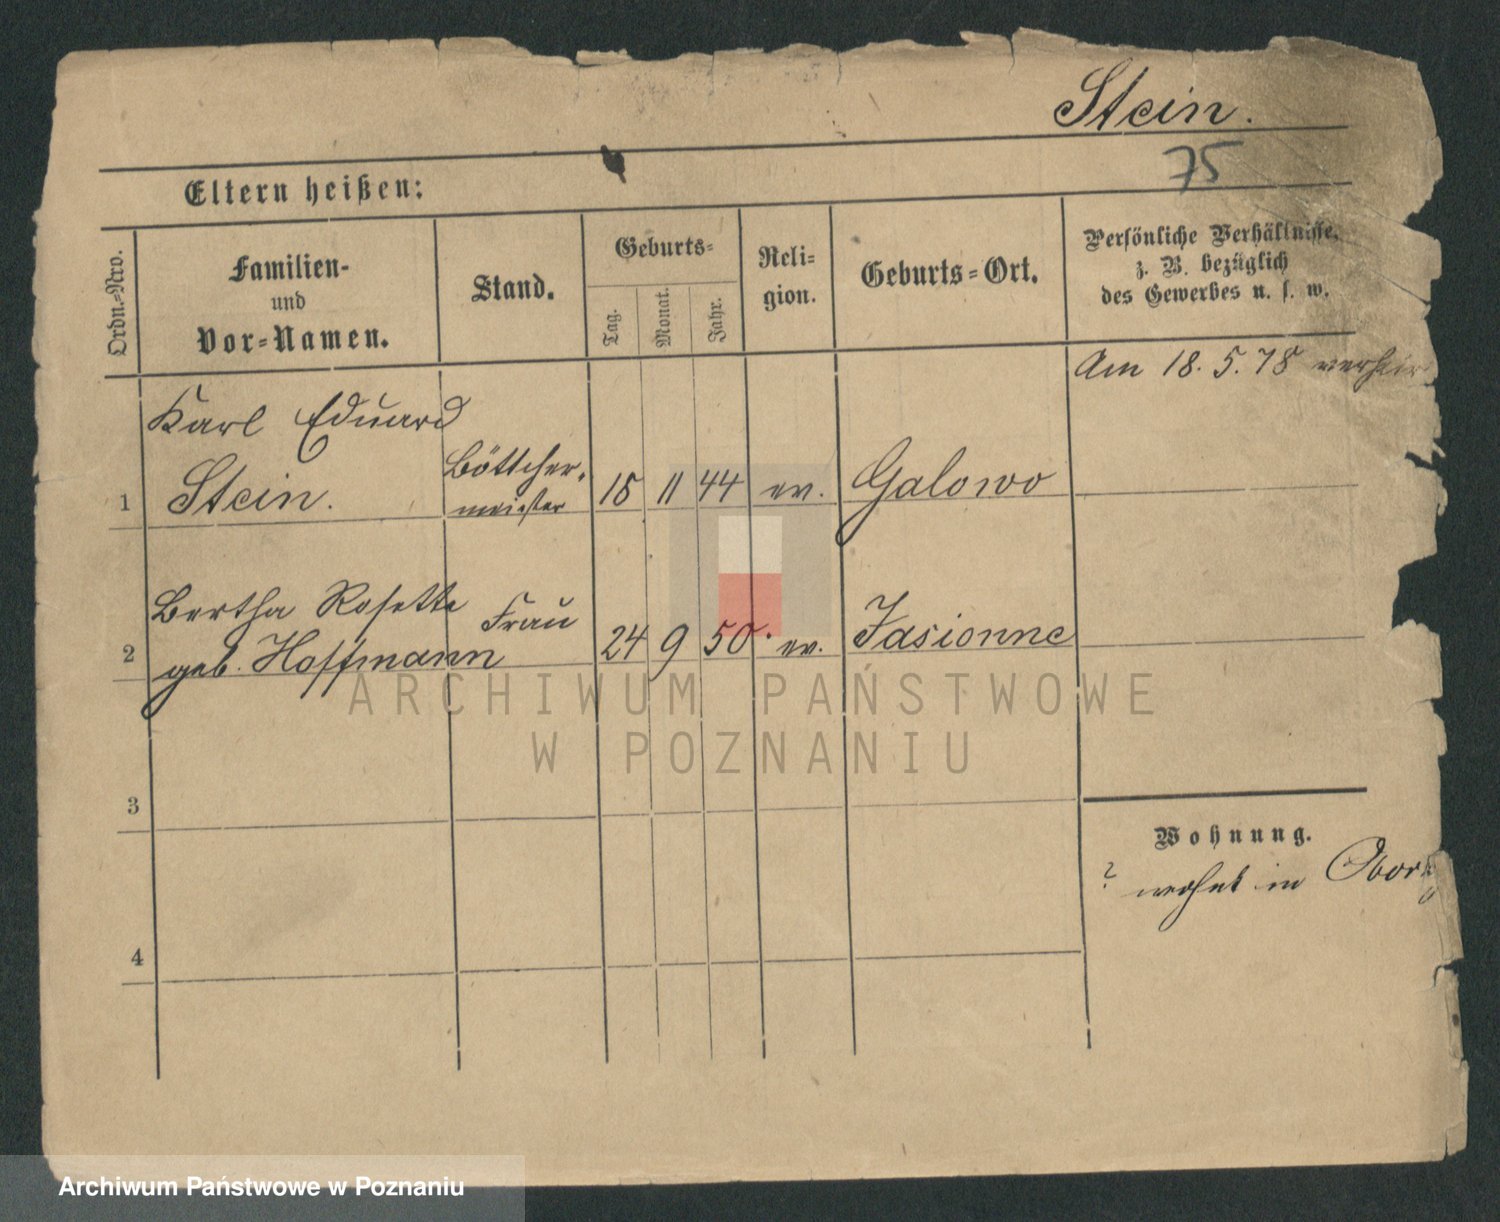 Stein.
75
Eltern heißen:
Ordn.-Nro.
Familien-
und
Vor-Namen.
Stand.
Geburts-
Tag.
Monat.
Jahr.
Reli-
gion.
Geburts-Ort.
Persönliche Verhältnisse,
z. B. bezüglich
des Gewerbes u. s. w.
Am 18. 5. 78 verheir
Karl Eduard
1 Stein. Böttcher-
meister 15 11 44 ev. Galowo
Bertha Rosette Frau
2 geb. Hoffmann 24 9 50. ev. Jasionne
ARCHIWUM PAŃSTWOWE
W POZNANIU
3
Wohnung.
? wohnt in
4
Archiwum Państwowe w Poznaniu